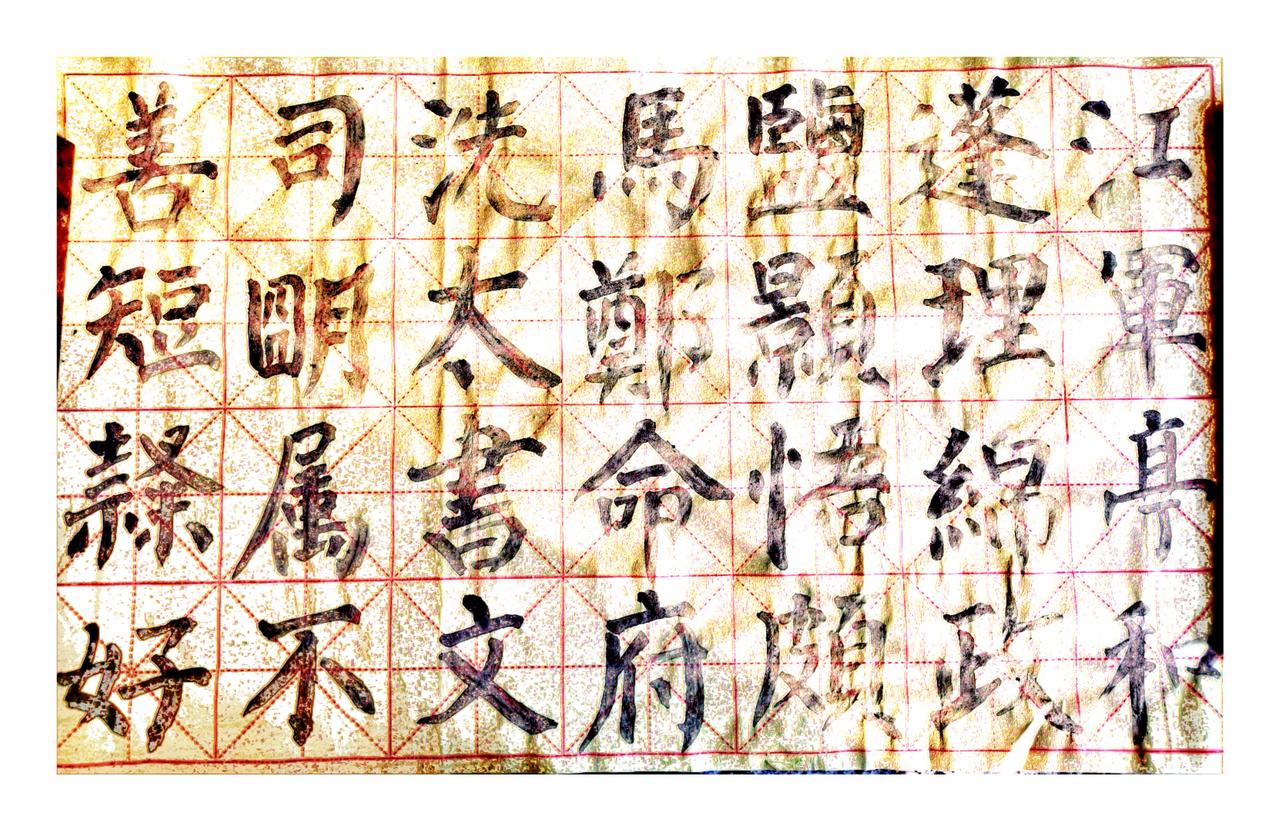 江軍亭和
蓬理綿政
鹽顥悟頗
馬鄭命府
洗太書文
司明属不
善短隸好